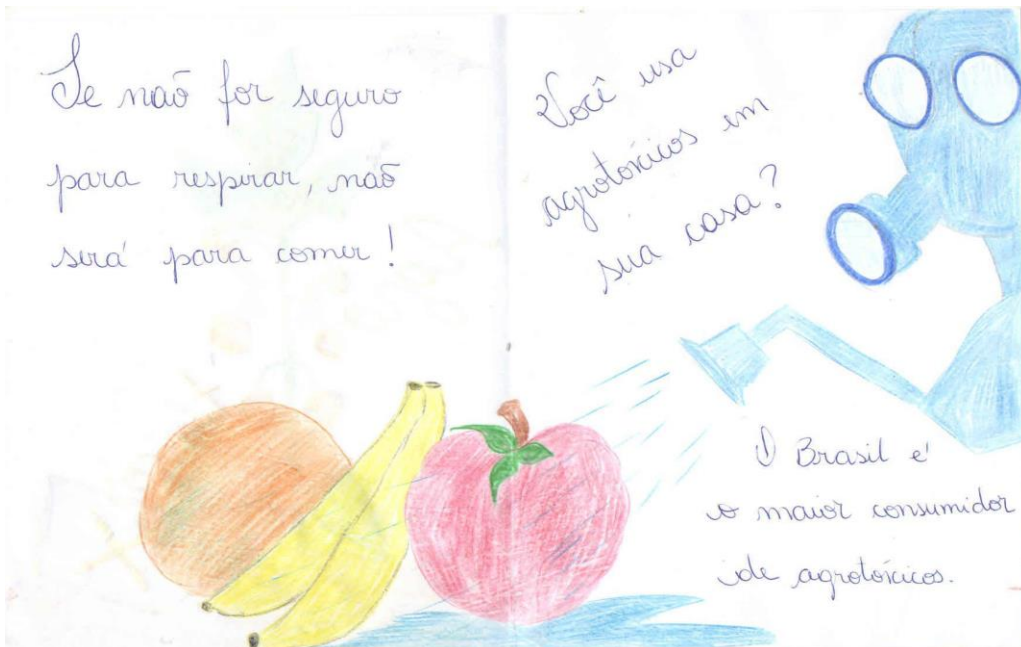 Se não for seguro
para respirar, não
será para comer!
Você usa
agrotóxicos em
sua casa?
O Brasil é
o maior consumidor
de agrotóxicos.